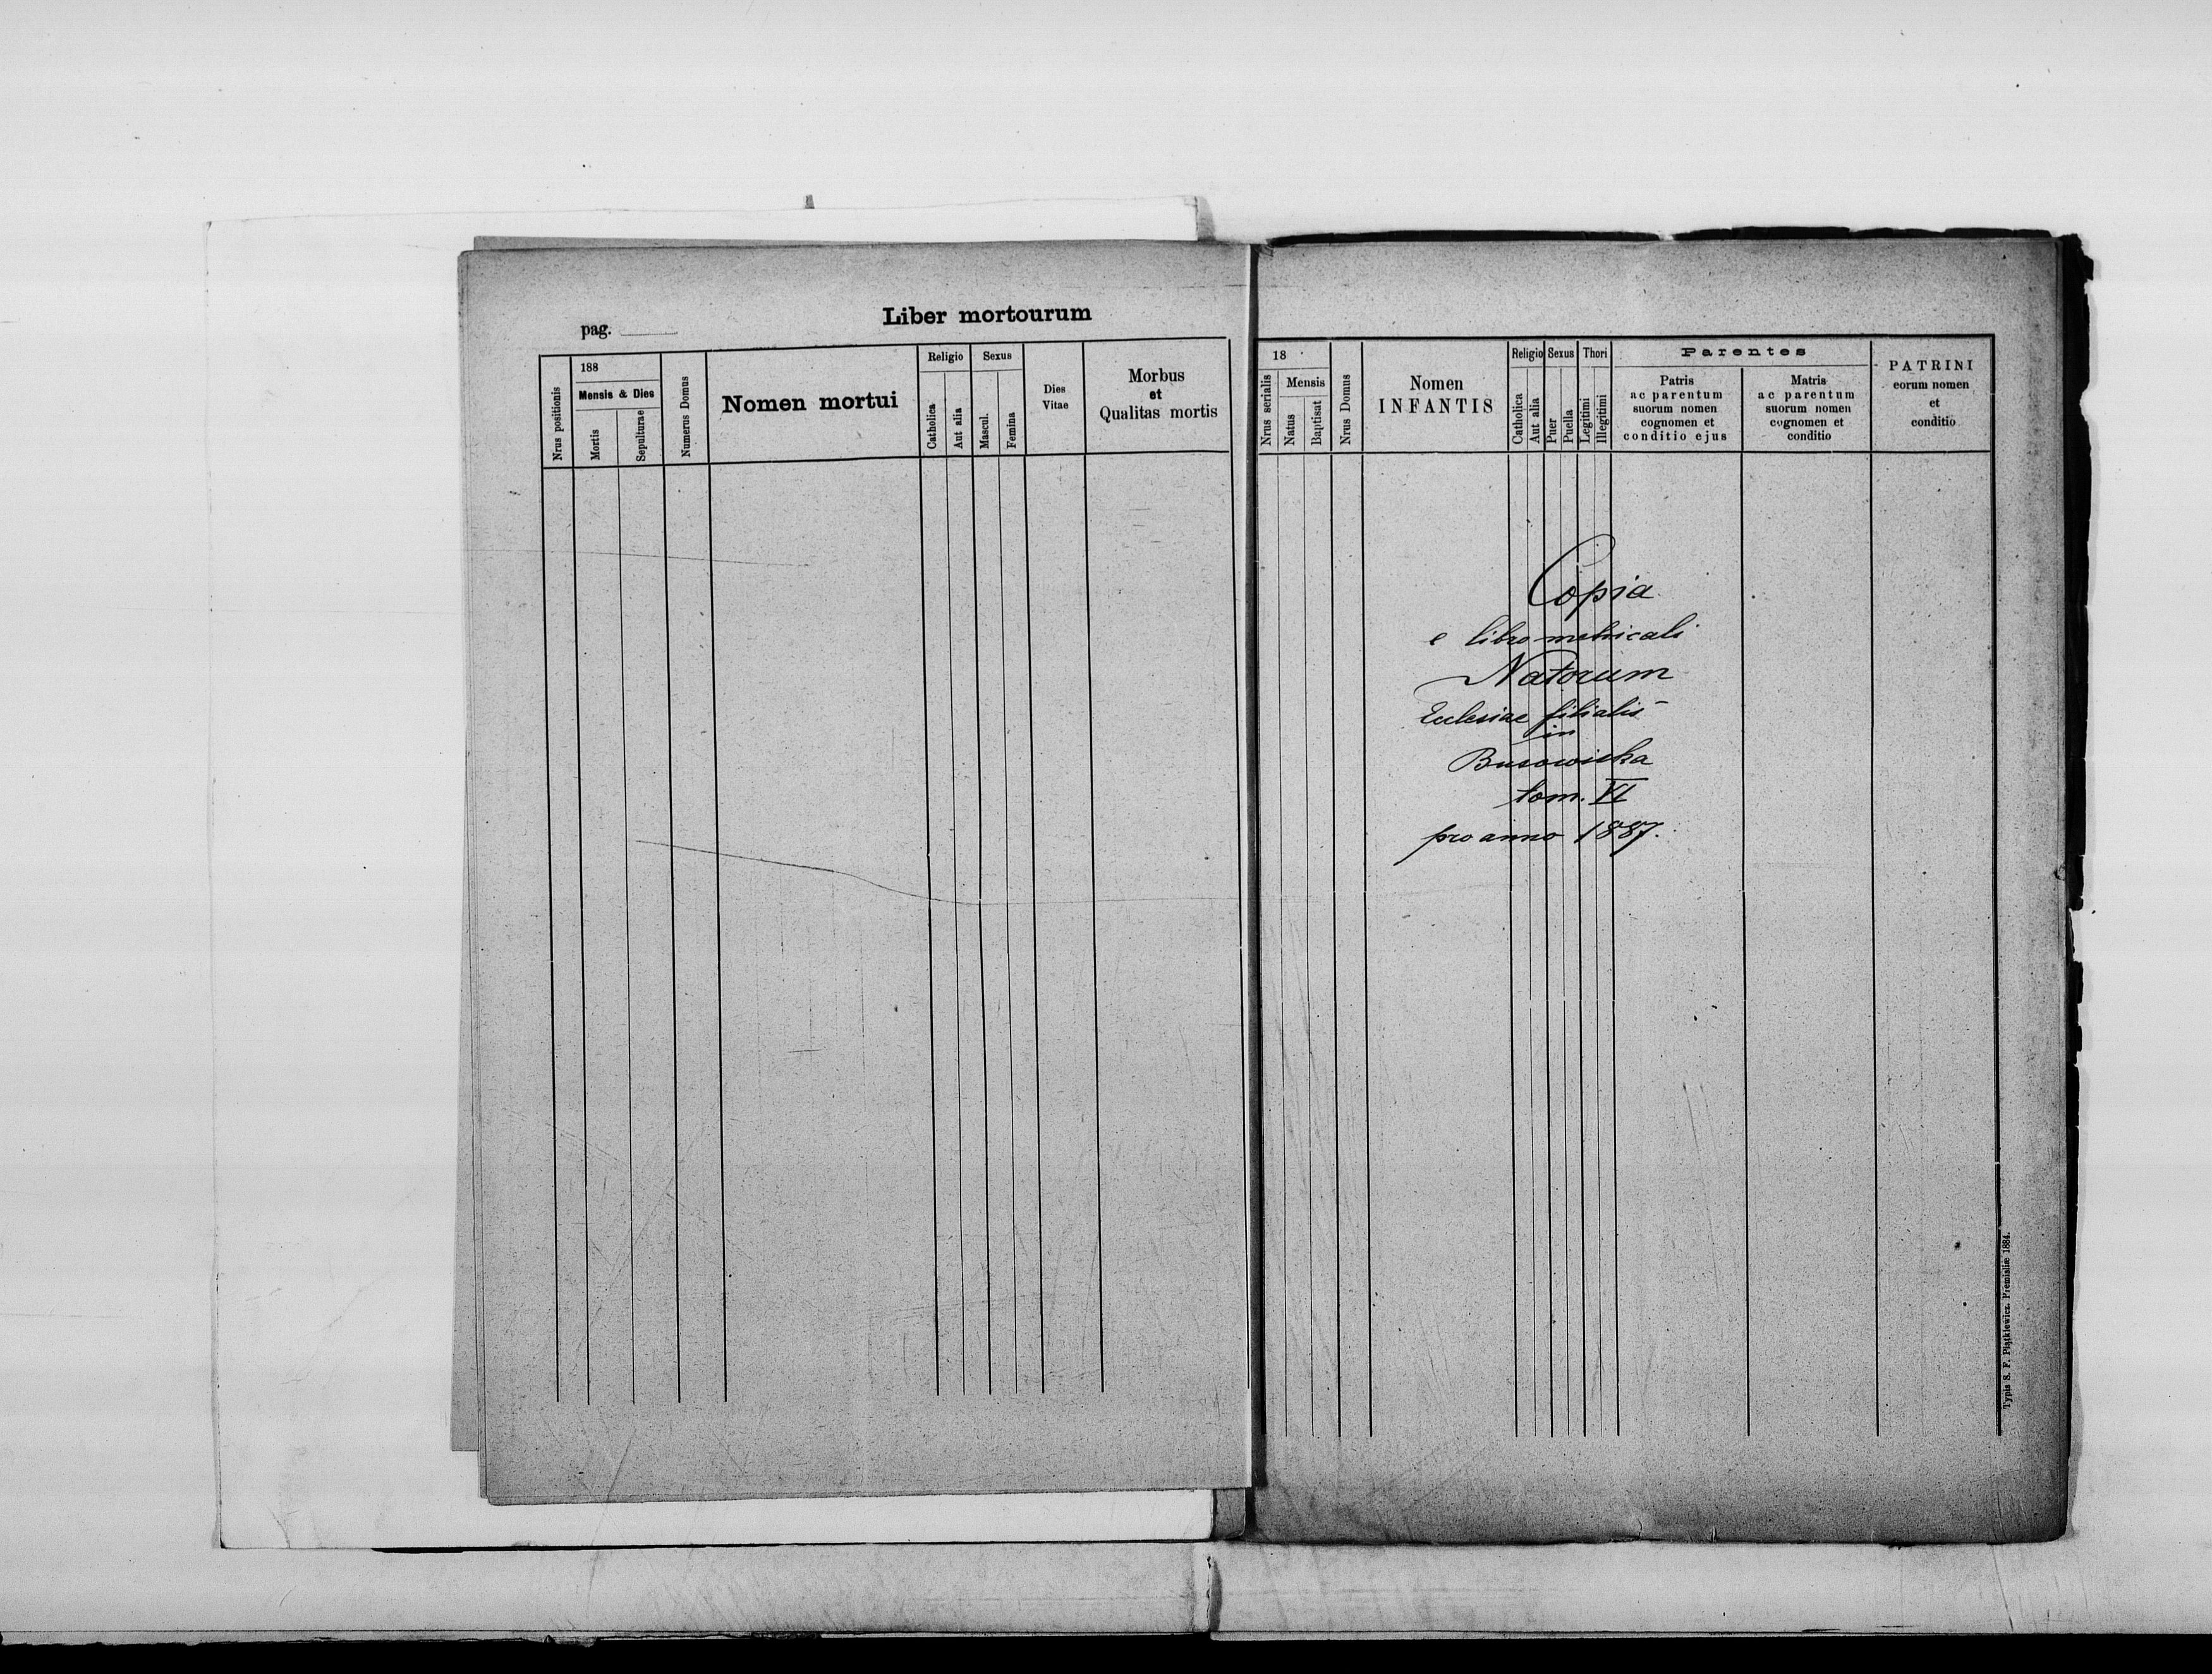 Liber mortourum
pag.
Nrus positionis
188
Mensis & Dies
Mortis
Sepulturae
Numerus Domus
Nomen mortui
Religio
Catholica
Aut alia
Sexus
Mascul.
Femina
Dies
Vitae
Morbus
et
Qualitas mortis
18
Nrus serialis
Mensis
Natus
Baptisat
Nrus Domus
Nomen
INFANTIS
Religio
Catholica
Aut alia
Sexus
Puer
Puella
Thori
Legitimi
Illegitimi
Parentes
Patris
ac parentum
suorum nomen
cognomen et
conditio ejus
Matris
ac parentum
suorum nomen
cognomen et
conditio
PATRINI
eorum nomen
et
conditio
Copia
e libro metricali
Natorum
Ecclesiae filialis
in
Busowiska
tom. VI
pro anno 1887.
Typis S. F. Piątkiewicz. Premisliæ 1884.